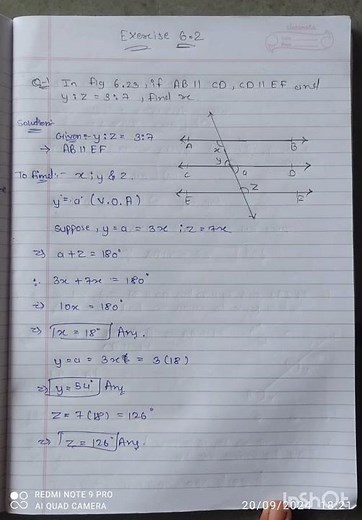 Exercise 6.2
Q-1 In Fig 6.23, if AB || CD, CD || EF and
y : z = 3 : 7, find x.
Solution:
Given:- y : z = 3:7
→ AB || EF
A B
x
y
C a D
z
E F
To find:- x ; y & z.
y = a (V.O.A)
Suppose, y = a = 3x ; z = 7x
⇒ a + z = 180°
∴ 3x + 7x = 180°
⇒ 10x = 180°
⇒ x = 18° Ans.
y = a = 3x = 3(18)
⇒ y = 54° Ans
z = 7(18) = 126°
⇒ z = 126° Ans.
REDMI NOTE 9 PRO
AI QUAD CAMERA
20/09/2024 18:21
InShOt